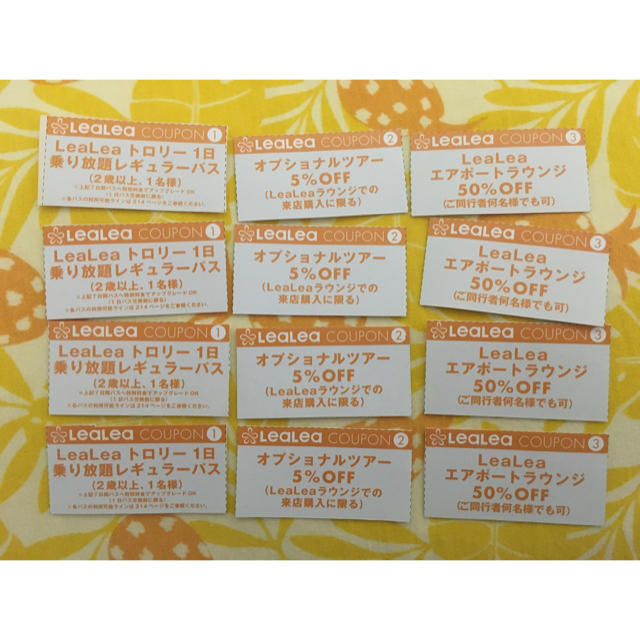 LeaLea COUPON 1
LeaLea トロリー 1日
乗り放題レギュラーパス
(2歳以上、1名様)
※上記7日間パスへ特別料金でアップグレードOK
(1日パス交換前に限る)
※各パスの利用可能ラインは214ページをご参照ください。
LeaLea COUPON 2
オプショナルツアー
5%OFF
(LeaLeaラウンジでの
来店購入に限る)
LeaLea COUPON 3
LeaLea
エアポートラウンジ
50%OFF
(ご同行者何名様でも可)
LeaLea COUPON 1
LeaLea トロリー 1日
乗り放題レギュラーパス
(2歳以上、1名様)
※上記7日間パスへ特別料金でアップグレードOK
(1日パス交換前に限る)
※各パスの利用可能ラインは214ページをご参照ください。
LeaLea COUPON 2
オプショナルツアー
5%OFF
(LeaLeaラウンジでの
来店購入に限る)
LeaLea COUPON 3
LeaLea
エアポートラウンジ
50%OFF
(ご同行者何名様でも可)
LeaLea COUPON 1
LeaLea トロリー 1日
乗り放題レギュラーパス
(2歳以上、1名様)
※上記7日間パスへ特別料金でアップグレードOK
(1日パス交換前に限る)
※各パスの利用可能ラインは214ページをご参照ください。
LeaLea COUPON 2
オプショナルツアー
5%OFF
(LeaLeaラウンジでの
来店購入に限る)
LeaLea COUPON 3
LeaLea
エアポートラウンジ
50%OFF
(ご同行者何名様でも可)
LeaLea COUPON 1
LeaLea トロリー 1日
乗り放題レギュラーパス
(2歳以上、1名様)
※上記7日間パスへ特別料金でアップグレードOK
(1日パス交換前に限る)
※各パスの利用可能ラインは214ページをご参照ください。
LeaLea COUPON 2
オプショナルツアー
5%OFF
(LeaLeaラウンジでの
来店購入に限る)
LeaLea COUPON 3
LeaLea
エアポートラウンジ
50%OFF
(ご同行者何名様でも可)